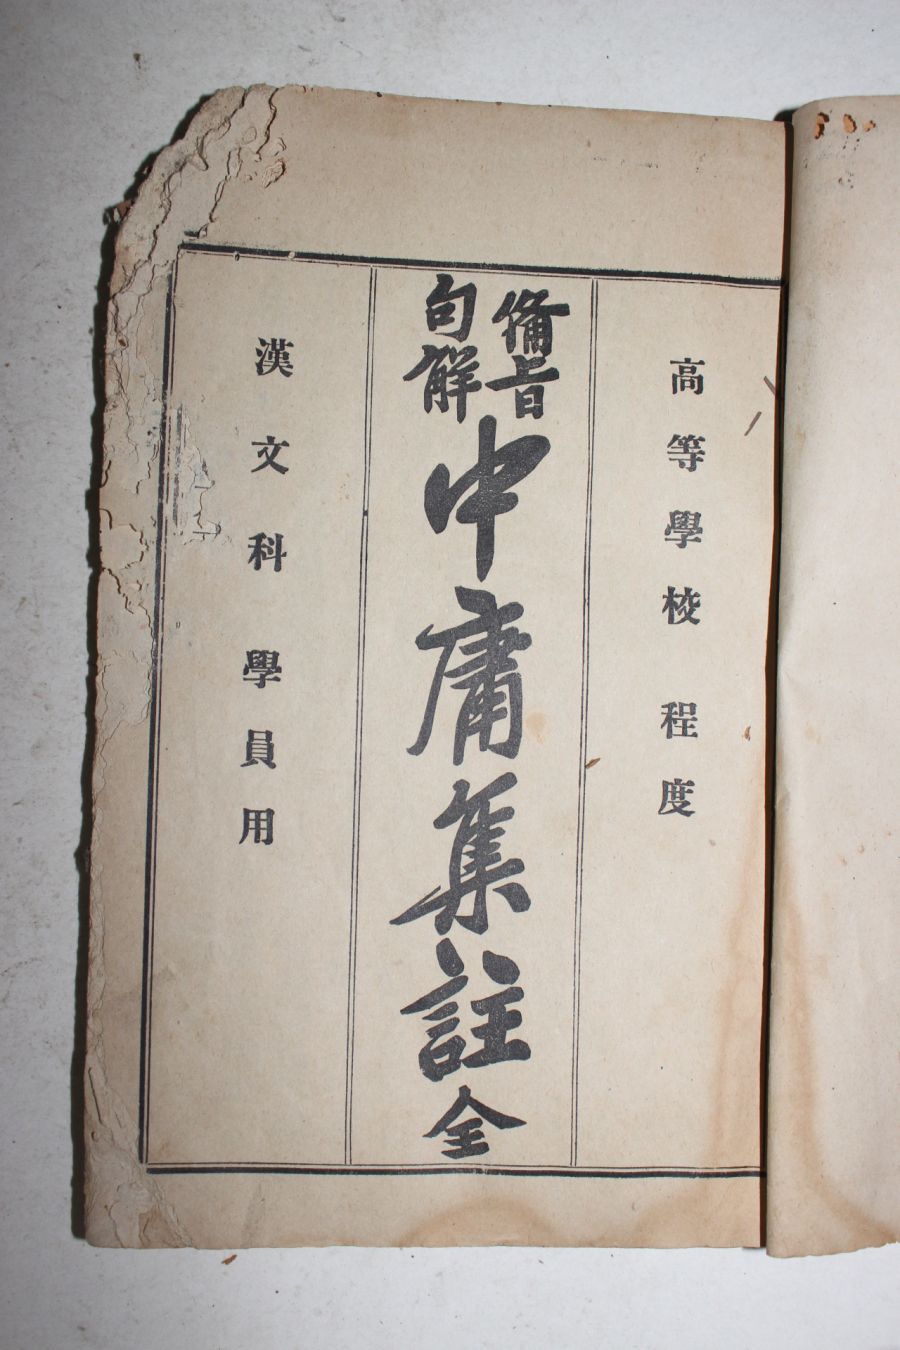 高等學校程度
備旨
句解
中庸集註全
漢文科學員用